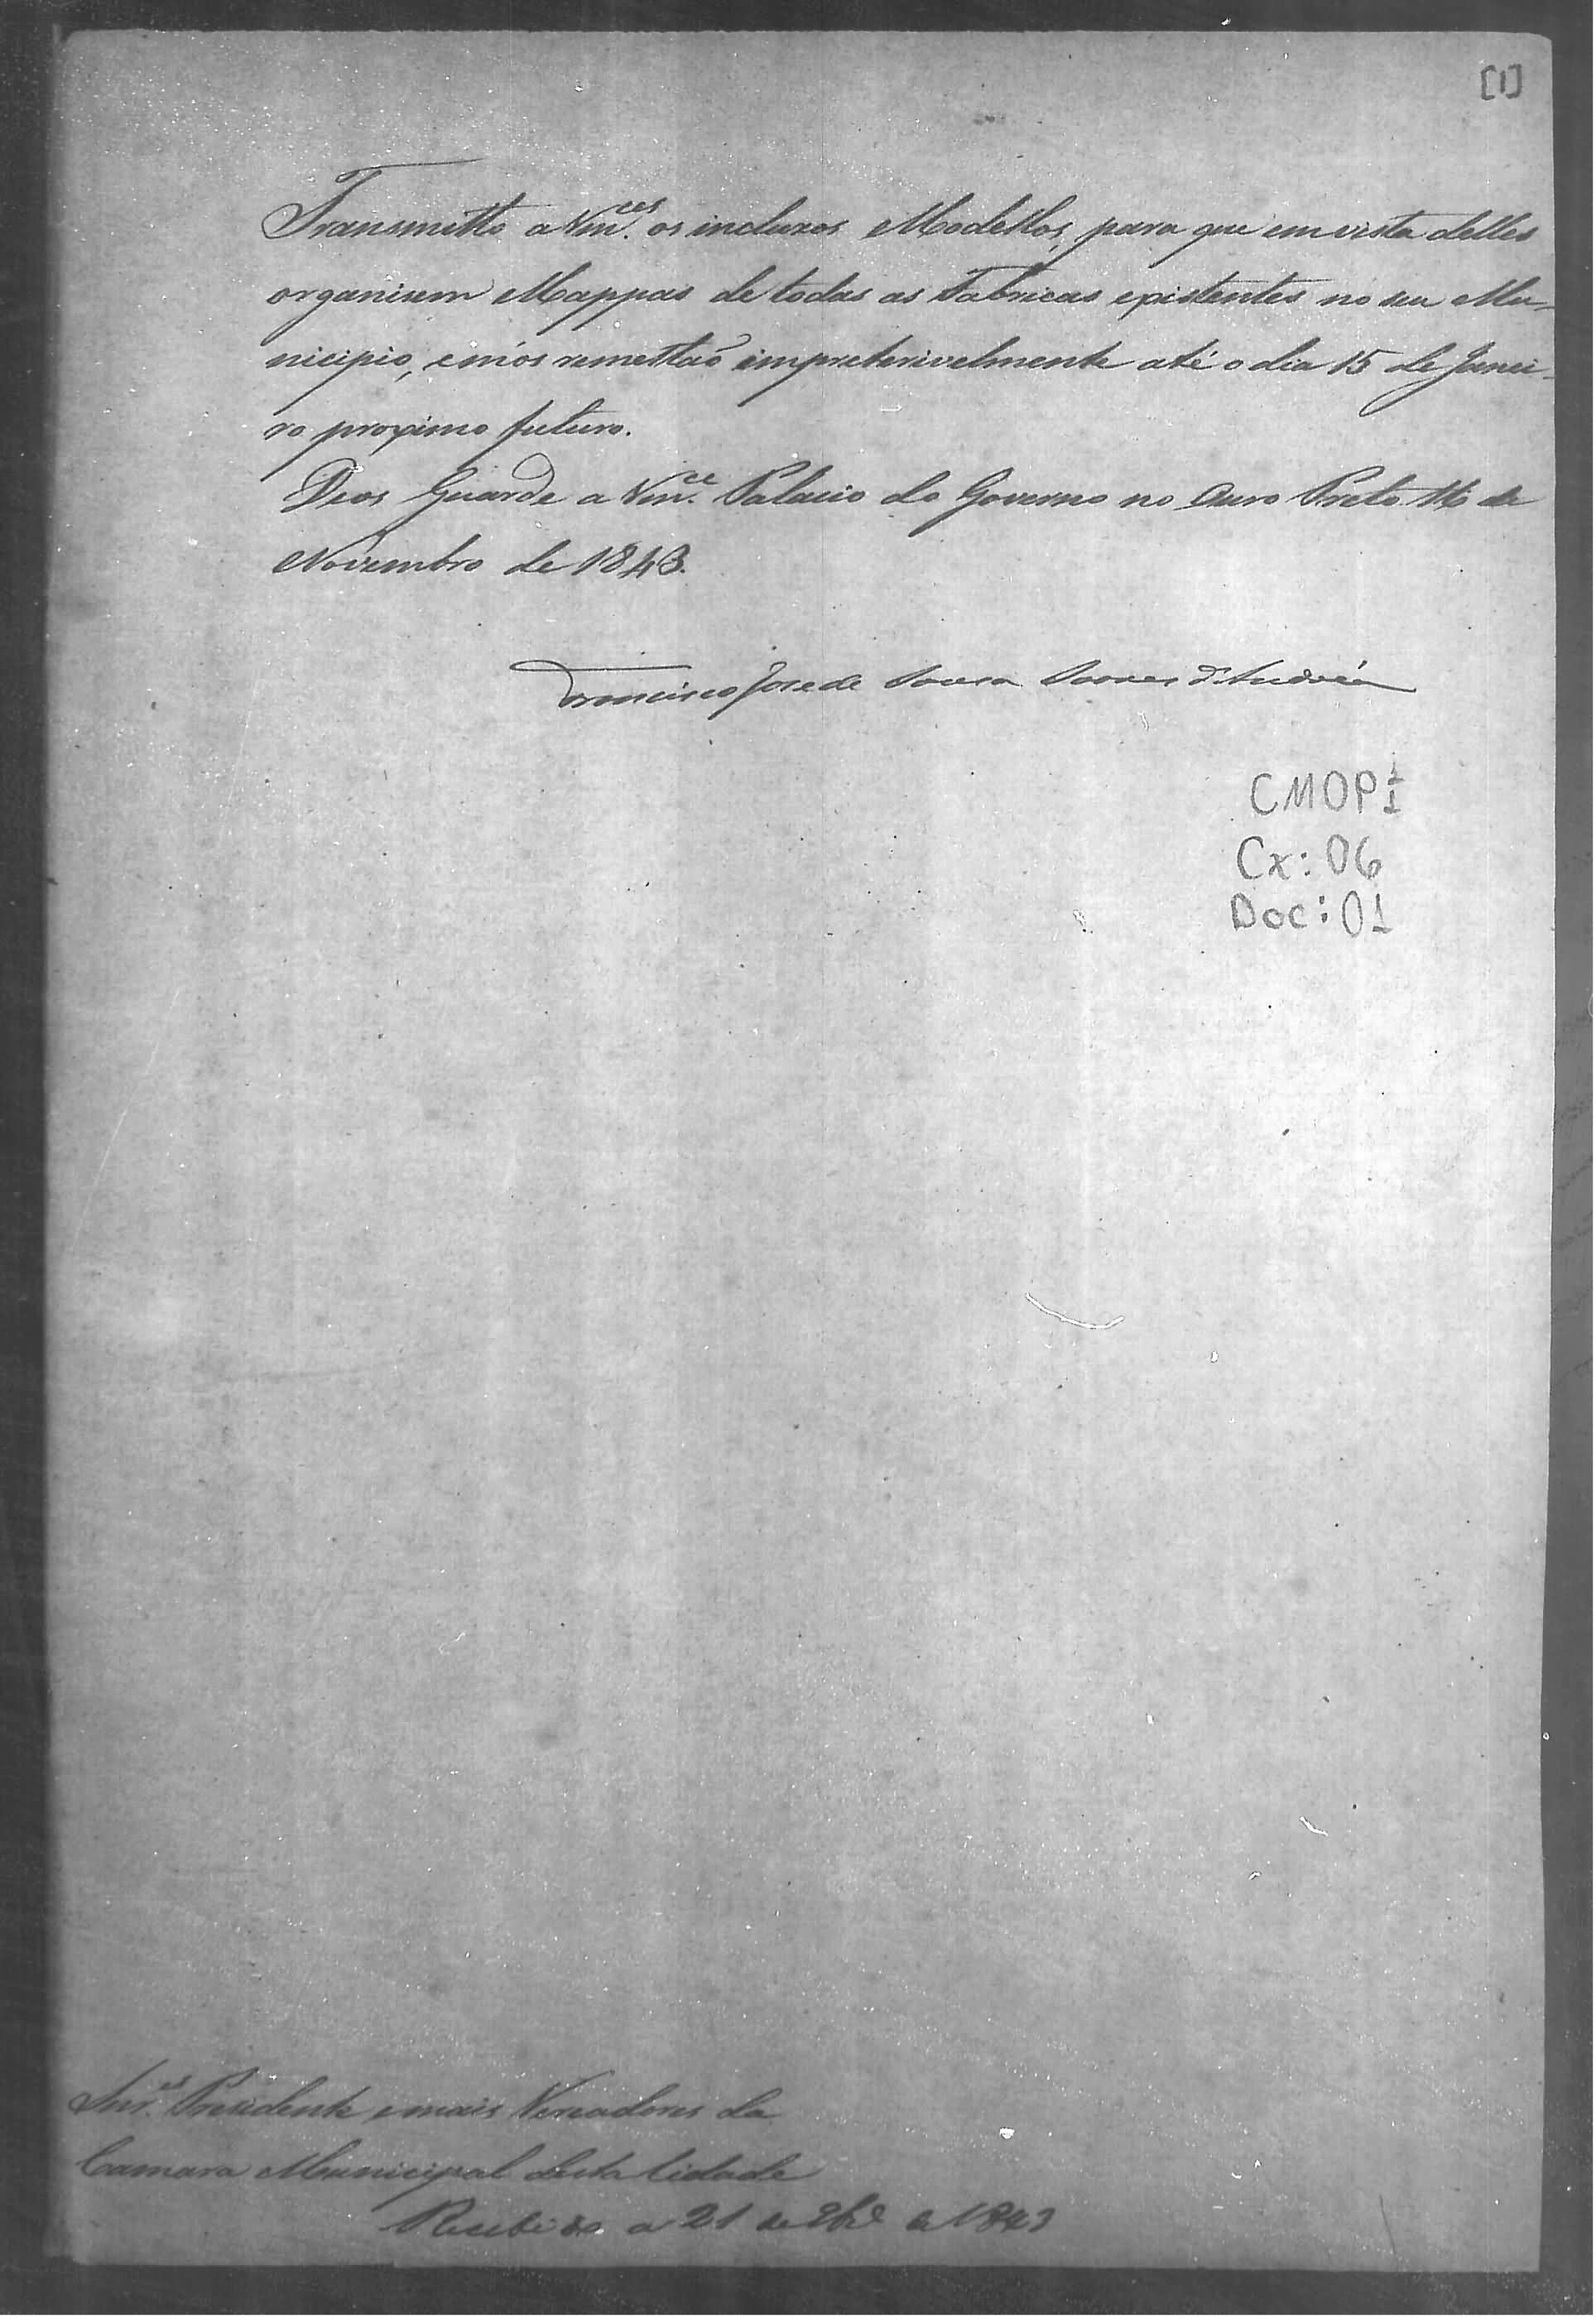 [1]
Transmitto a Vm.ces os incluzos Modellos, para que em vista delles
organisem Mappas de todas as Fabricas existentes no seu Mu-
nicipio, e m'os remettaõ impreterivelmente até o dia 15 de Janei-
ro proximo futuro.
Deos Guarde a Vm.ce Palacio do Governo no Ouro Preto 16 de
Novembro de 1843.
Francisco Jose de Sousa Soares d'Andréa
CMOP
Cx: 06
Doc: 01
Snr.es Presidente e mais Vereadores da
Camara Municipal desta Cidade
Recebido a 21 de de 1843